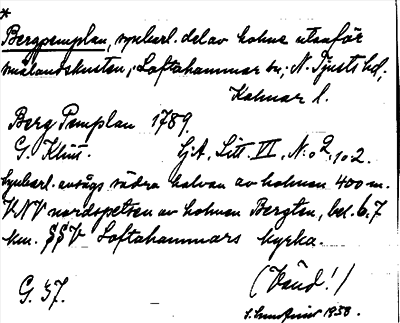 *
Bergpemplan, synbarl. del av holme utanför
smålandskusten, Loftahammar sn, N. Tjusts hd,
Kalmar l.
Berg Pemplan 1789.
G. Klint. Sjk. Litt. VI, N:o 2, 1, 2.
Synbarl. avsågs södra halvan av holmen 400 m.
VNV nordspetsen av holmen Bergten, bel. 6.7
km. SSV Loftahammars kyrka.
G. 37. (Vänd!)
1938.